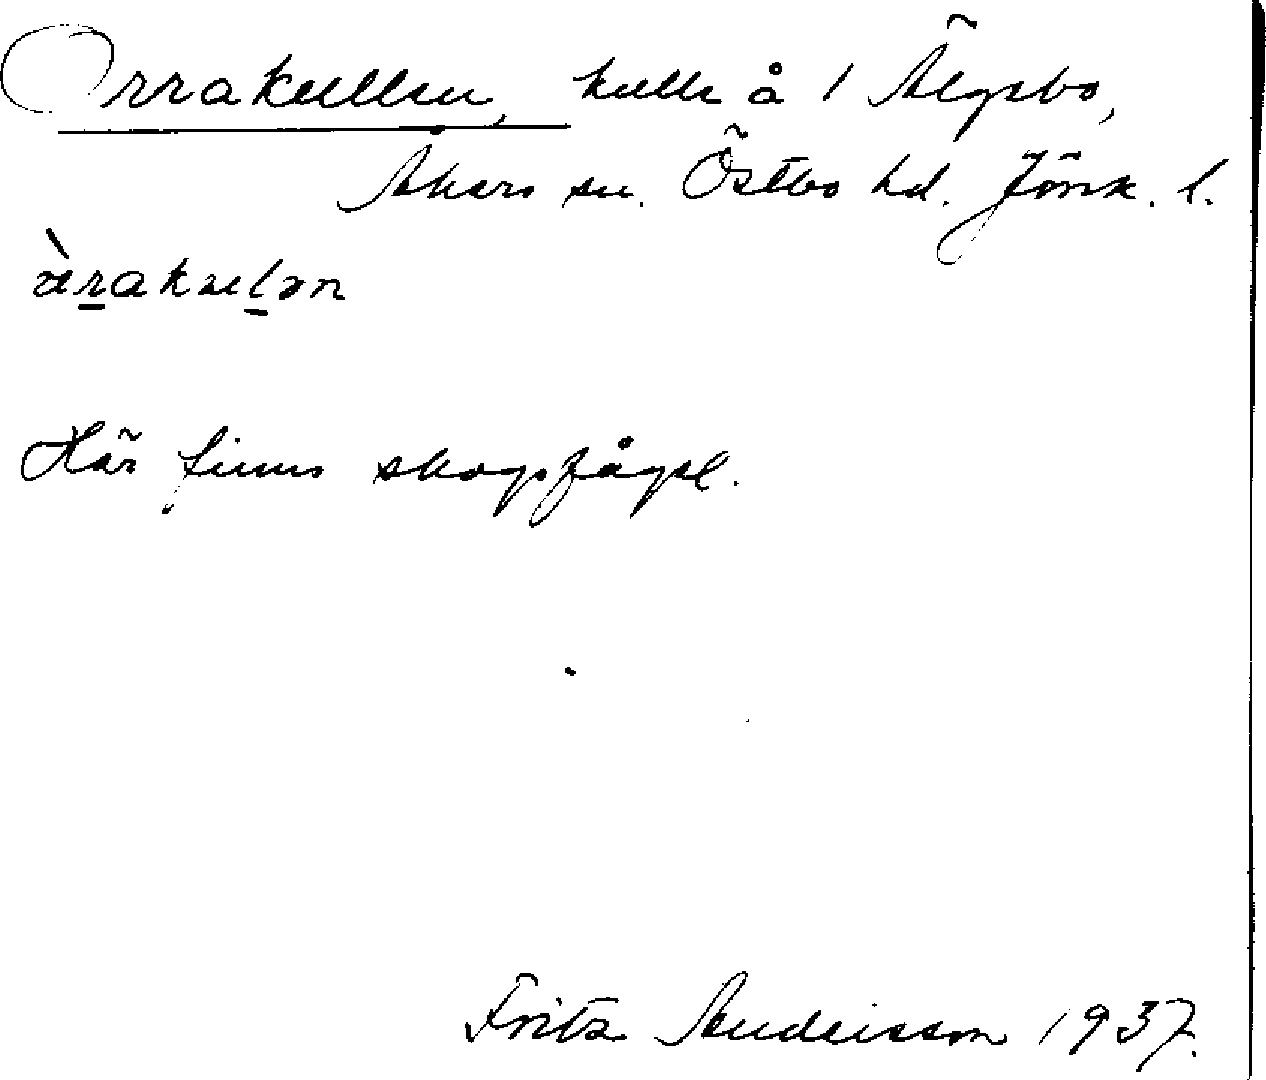 Orrakullen, kulle å 1 Älgsbo,
Åkers sn. Östbo hd. Jönk. l.
àrakulən
Här finns skogsfågel.
Fritz Andersson 1937.